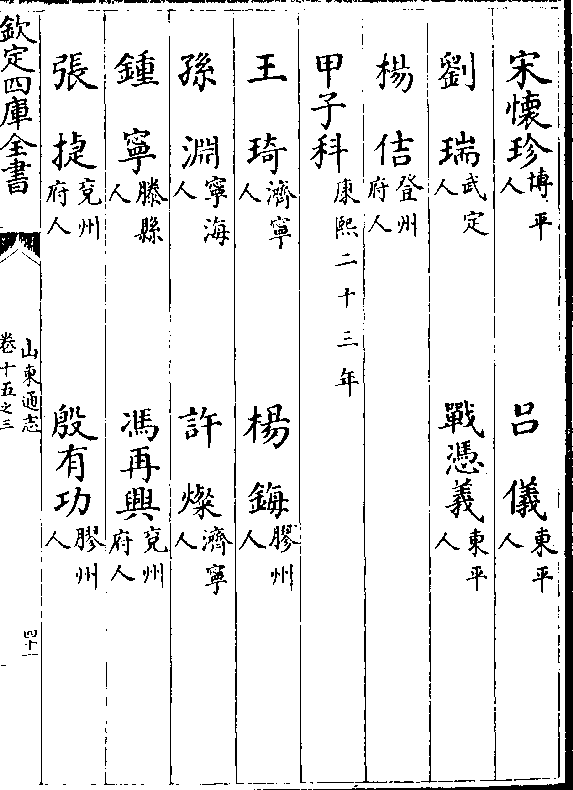 宋懷珍博平人　呂儀東平人
劉瑞武定人　戰憑義東平人
楊佶登州府人
甲子科康熙二十三年
王琦濟寧人　楊䥈膠州人
孫淵寧海人　許燦濟寧人
鍾寧滕縣人　馮再興兗州府人
張捷兗州府人　殷有功膠州人
欽定四庫全書
山東通志
卷十五之三
四十一